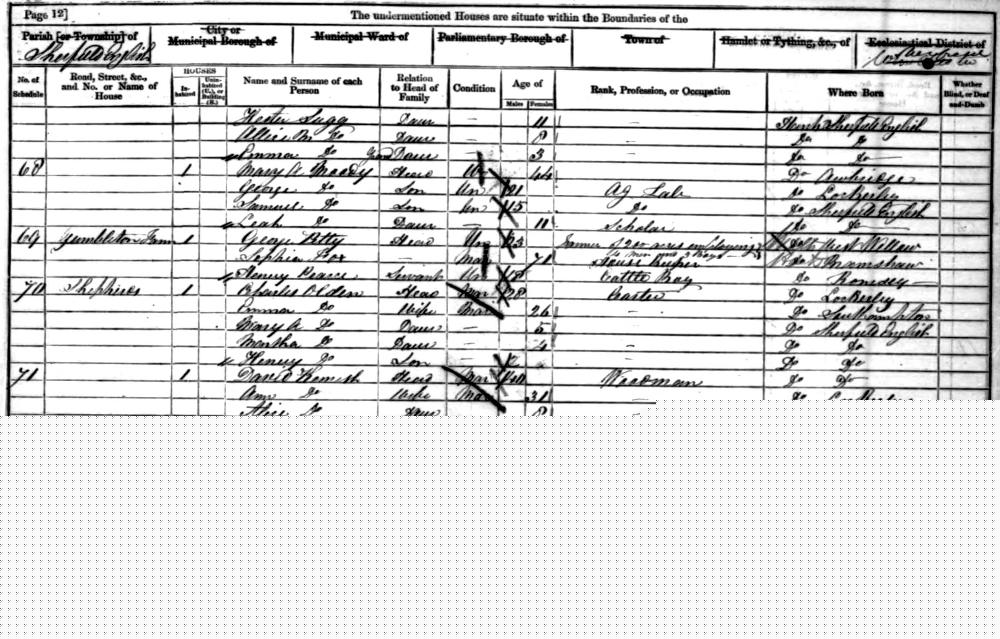 Page 12]
The undermentioned Houses are situate within the Boundaries of the
Parish [or Township] of
City or Municipal Borough of
Municipal Ward of
Parliamentary Borough of
Town of
Hamlet or Tything, &c., of
Ecclesiastical District of
Sherfield English
No. of Schedule
Road, Street, &c., and No. or Name of House
HOUSES
Inhabited
Uninhabited (U.), or Building (B.)
Name and Surname of each Person
Relation to Head of Family
Condition
Age of
Males
Females
Rank, Profession, or Occupation
Where Born
Whether Blind, or Deaf-and-Dumb
Hester Sugg Daur — 11 — Hants Sherfield English
Do Daur — 8 — Do Do
Emma Do Daur 3 — Do Do
68 1 Mary A Moody Head Un 44 Do Awbridge
George Do Son Un 21 Ag Lab Do Lockerley
Samuel Do Son Un 15 Do Do Sherfield English
Leah Do Daur — 10 Scholar Do Do
69 Farm 1 George Head Un 23 Farmer of 200 acres employing West Willow
Sophia Fox Mar 71 House Keeper Do Bramshaw
Henry Pearce Servant Un 18 Cattle Boy Do Romsey
70 1 Charles Olden Head Mar 28 Carter Do Lockerley
Emma Do Wife Mar 26 — Do Southampton
Mary A Do Daur — 5 — Do Sherfield English
Martha Do Daur 4 — Do Do
Henry Do Son — — Do Do
71 1 David Head Mar 40 Woodman Do Do
Ann Do Wife Mar 31 — Do
Alice Do Daur 8